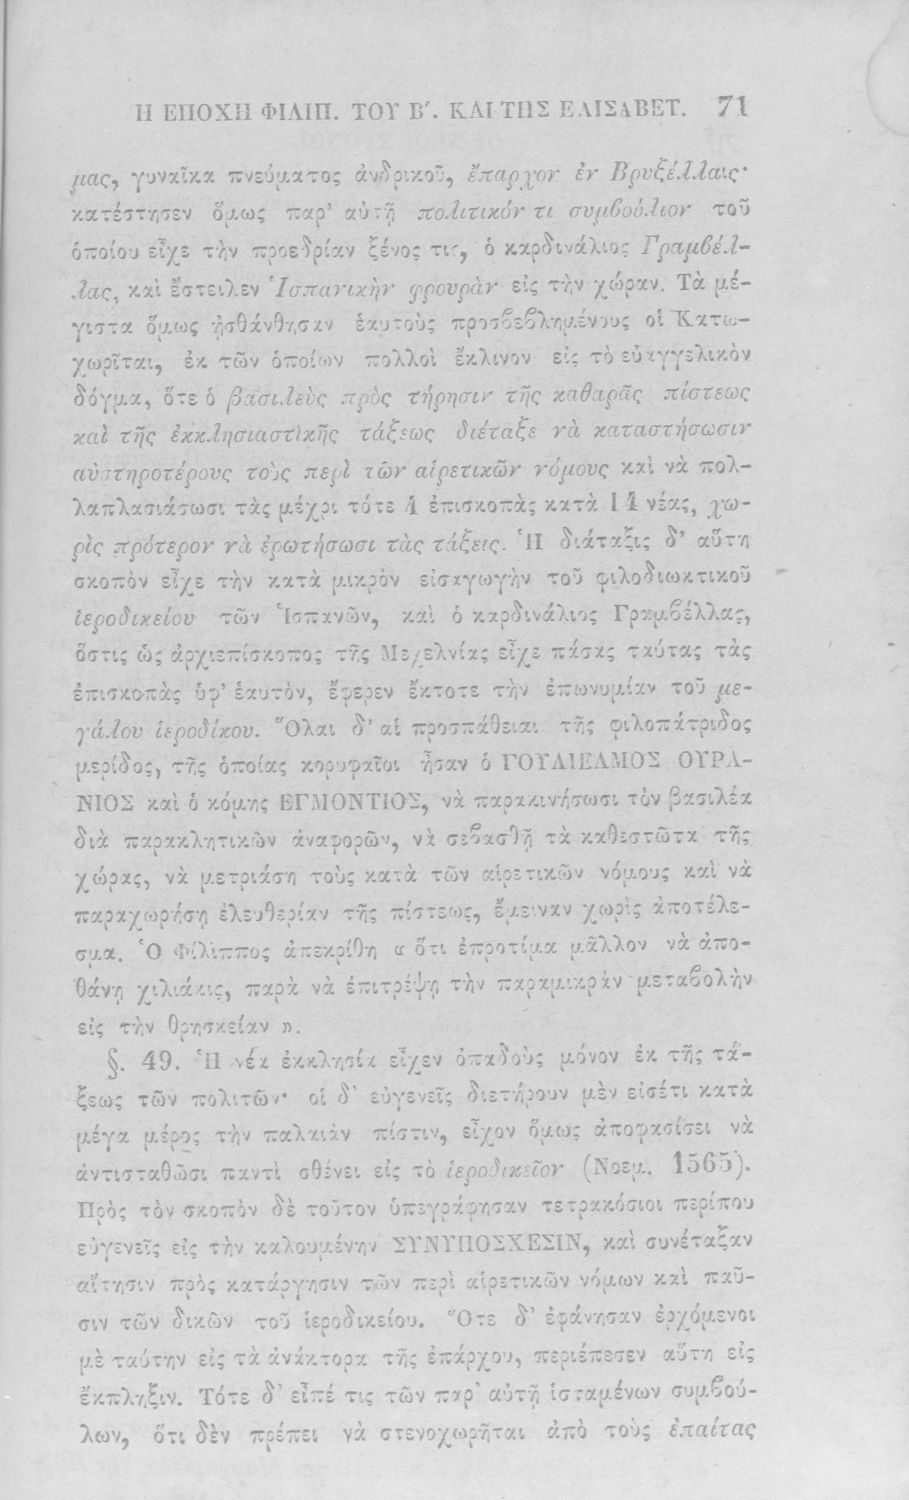 Η ΕΠΟΧΗ ΦΙΛΙΠ. ΤΟΥ Β΄. ΚΑΙ ΤΗΣ ΕΛΙΣΑΒΕΤ. 71
μας, γυναῖκα πνεύματος ἀνδρικοῦ, ἔπαρχον ἐν Βρυξέλλαις·
κατέστησεν ὅμως παρ' αὐτῇ πολιτικόν τι συμβούλιον τοῦ
ὁποίου εἶχε τὴν προεδρίαν ξένος τις, ὁ καρδινάλιος Γραμβέλ-
λας, καὶ ἔστειλεν Ἱσπανικὴν φρουρὰν εἰς τὴν χώραν. Τὰ μέ-
γιστα ὅμως ᾐσθάνθησαν ἑαυτοὺς προσβεβλημένους οἱ Κατω-
χωρῖται, ἐκ τῶν ὁποίων πολλοὶ ἔκλινον εἰς τὸ εὐαγγελικὸν
δόγμα, ὅτε ὁ βασιλεὺς πρὸς τήρησιν τῆς καθαρᾶς πίστεως
καὶ τῆς ἐκκλησιαστικῆς τάξεως διέταξε νὰ καταστήσωσιν
αὐστηροτέρους τοὺς περὶ τῶν αἱρετικῶν νόμους καὶ νὰ πολ-
λαπλασιάσωσι τὰς μέχρι τότε 4 ἐπισκοπὰς κατὰ 14 νέας, χω-
ρὶς πρότερον νὰ ἐρωτήσωσι τὰς τάξεις. Ἡ διάταξις δ' αὕτη
σκοπὸν εἶχε τὴν κατὰ μικρὸν εἰσαγωγὴν τοῦ φιλοδιωκτικοῦ
ἱεροδικείου τῶν Ἱσπανῶν, καὶ ὁ καρδινάλιος Γραμβέλλας,
ὅστις ὡς ἀρχιεπίσκοπος τῆς Μεχελνίας εἶχε πάσας ταύτας τὰς
ἐπισκοπὰς ὑφ' ἑαυτὸν, ἔφερεν ἔκτοτε τὴν ἐπωνυμίαν τοῦ με-
γάλου ἱεροδίκου. Ὅλαι δ' αἱ προσπάθειαι τῆς φιλοπάτριδος
μερίδος, τῆς ὁποίας κορυφαῖοι ἦσαν ὁ ΓΟΥΛΙΕΛΜΟΣ ΟΥΡΑ-
ΝΙΟΣ καὶ ὁ κόμης ΕΓΜΟΝΤΙΟΣ, νὰ παρακινήσωσι τὸν βασιλέα
διὰ παρακλητικῶν ἀναφορῶν, νὰ σεβασθῇ τὰ καθεστῶτα τῆς
χώρας, νὰ μετριάσῃ τοὺς κατὰ τῶν αἱρετικῶν νόμους καὶ νὰ
παραχωρήσῃ ἐλευθερίαν τῆς πίστεως, ἔμειναν χωρὶς ἀποτέλε-
σμα. Ὁ Φίλιππος ἀπεκρίθη « ὅτι ἐπροτίμα μᾶλλον νὰ ἀπο-
θάνῃ χιλιάκις, παρὰ νὰ ἐπιτρέψῃ τὴν παραμικρὰν μεταβολὴν
εἰς τὴν θρησκείαν ».
§. 49. Ἡ νέα ἐκκλησία εἶχεν ὀπαδοὺς μόνον ἐκ τῆς τά-
ξεως τῶν πολιτῶν· οἱ δ' εὐγενεῖς διετήρουν μὲν εἰσέτι κατὰ
μέγα μέρος τὴν παλαιὰν πίστιν, εἶχον ὅμως ἀποφασίσει νὰ
ἀντισταθῶσι παντὶ σθένει εἰς τὸ ἱεροδικεῖον (Νοεμ. 1565).
Πρὸς τὸν σκοπὸν δὲ τοῦτον ὑπεγράφησαν τετρακόσιοι περίπου
εὐγενεῖς εἰς τὴν καλουμένην ΣΥΝΥΠΟΣΧΕΣΙΝ, καὶ συνέταξαν
αἴτησιν πρὸς κατάργησιν τῶν περὶ αἱρετικῶν νόμων καὶ παῦ-
σιν τῶν δικῶν τοῦ ἱεροδικείου. Ὅτε δ' ἐφάνησαν ἐρχόμενοι
μὲ ταύτην εἰς τὰ ἀνάκτορα τῆς ἐπάρχου, περιέπεσεν αὕτη εἰς
ἔκπληξιν. Τότε δ' εἶπέ τις τῶν παρ' αὐτῇ ἱσταμένων συμβού-
λων, ὅτι δὲν πρέπει νὰ στενοχωρῆται ἀπὸ τοὺς ἐπαίτας